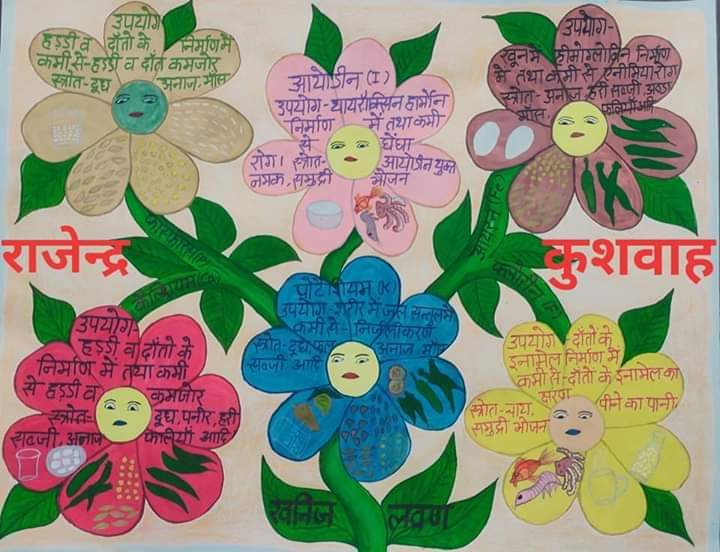 उपयोग
हड्डी व दाँतो के निर्माण में
कमी से-हड्डी व दाँत कमजोर
स्त्रोत-दूध अनाज, माँस
आयोडीन (I)
उपयोग-थायरॉक्सिन हार्मोन
निर्माण में तथा कमी
से घेंघा
रोग। स्त्रोत-आयोडीन युक्त
नमक, समुद्री भोजन
उपयोग-
खून में हीमोग्लोबिन निर्माण
में तथा कमी से एनीमिया रोग
स्त्रोत-अनाज, हरी सब्जी, अण्डा
माँस, फलियाँ आदि
राजेन्द्र
कुशवाह
फास्फोरस(P)
आयरन (Fe)
कैल्शियम(Ca)
फ्लोरीन (F)
उपयोग-
हड्डी व दाँतो के
निर्माण में तथा कमी
से हड्डी व कमजोर
स्त्रोत- दूध, पनीर, हरी
सब्जी, अनाज फलियाँ आदि
पोटेशियम (K)
उपयोग-शरीर में जल सन्तुलन
कमी से-निर्जलीकरण
स्त्रोत-दूध, फल, अनाज, माँस
सब्जी आदि
उपयोग दाँतो के
इनामेल निर्माण में
कमी से-दाँतो के इनामेल का
क्षरण
स्त्रोत-चाय, पीने का पानी,
समुद्री भोजन
खनिज लवण